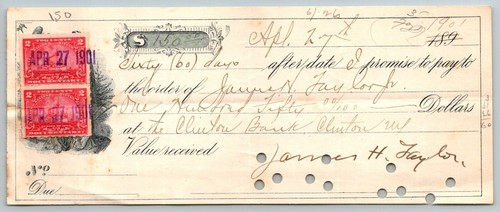 150
$ 150
Apl. 27th 1901
189
Sixty (60) days after date I promise to pay to
the order of James H. Taylor Jr.
One Hundred Fifty 00/100 Dollars
at the Clinton Bank Clinton
Value received
No.
James H. Taylor.
Due
2 2
APR 27 1901
2 2